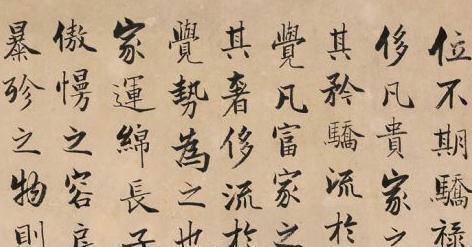 位不期驕祿
侈凡貴家之
其矜驕流於
覺凡富家之
其奢侈流於
覺勢為之也
家運綿長子
傲慢之容房
暴殄之物則